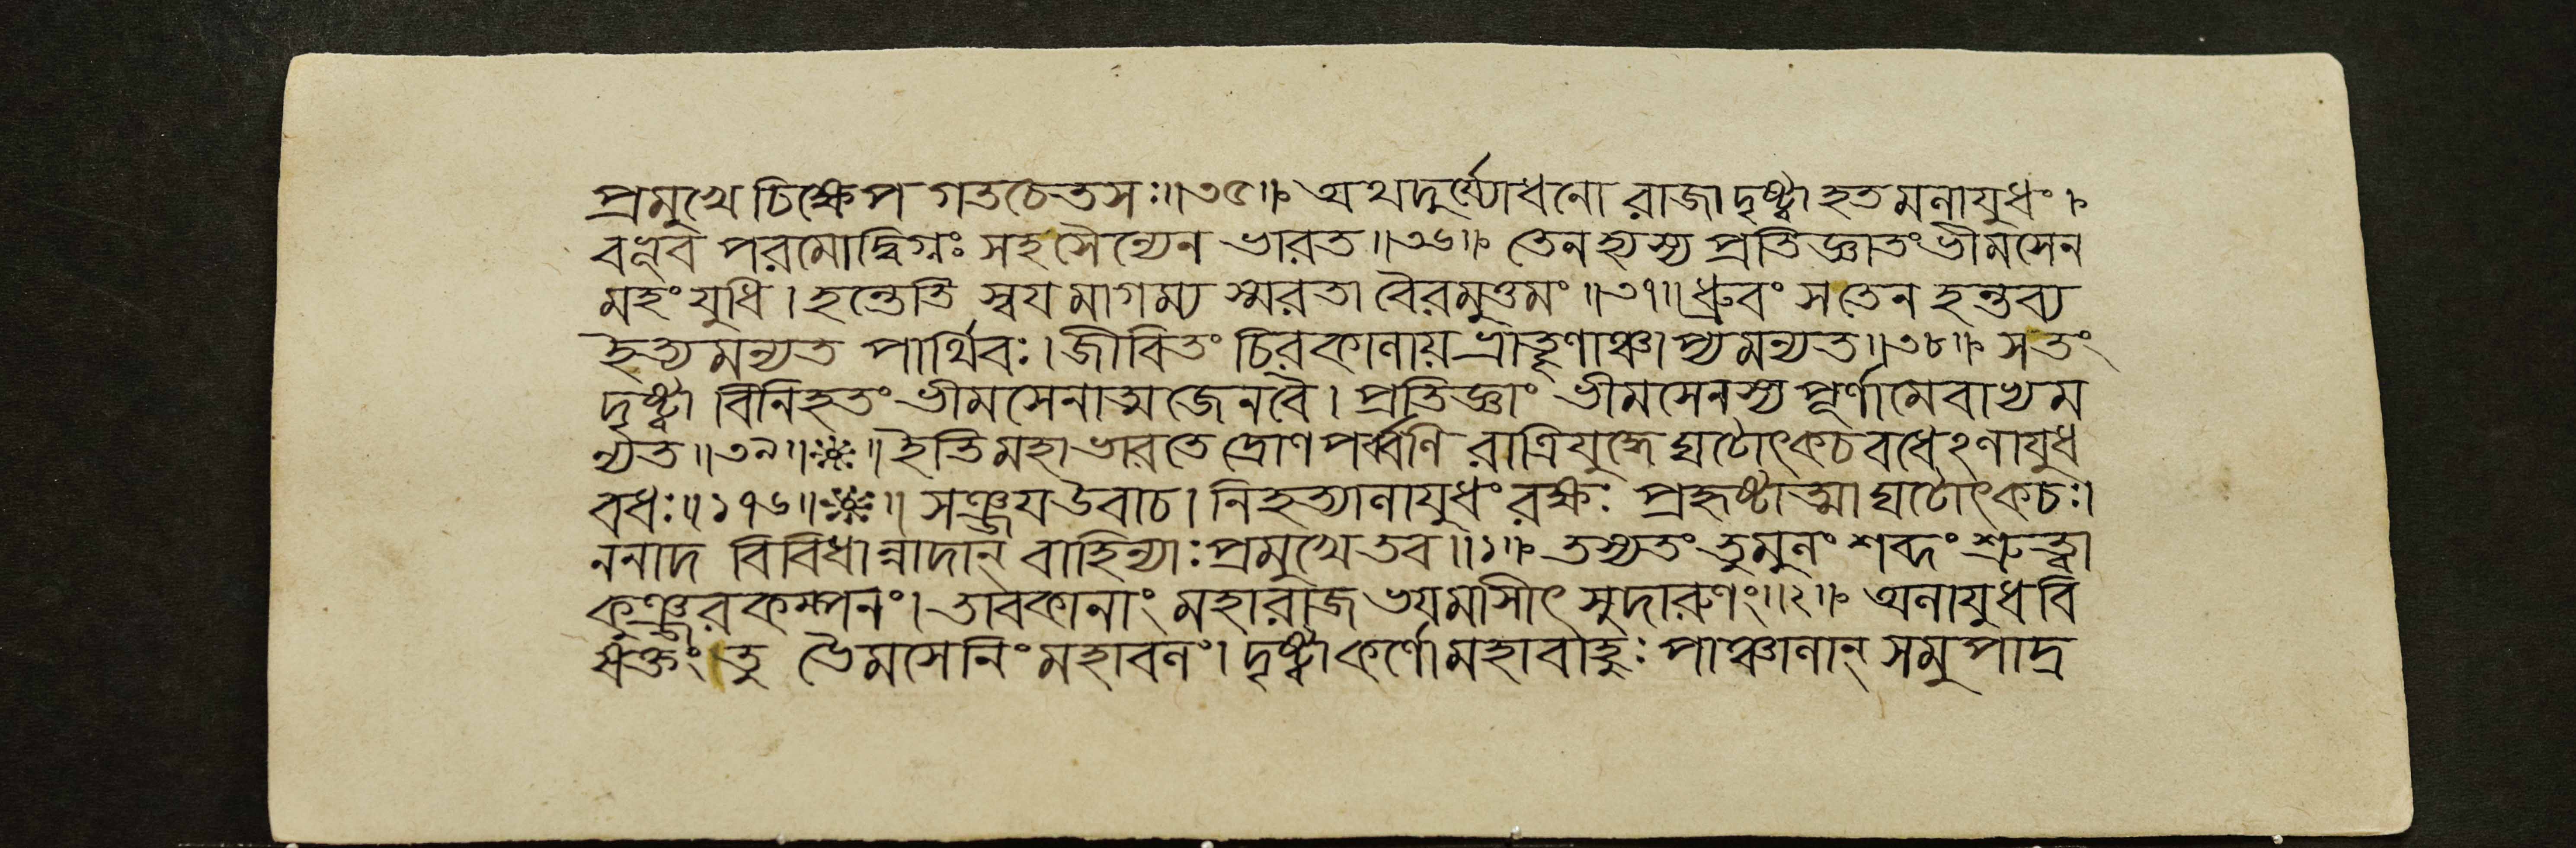 প্রমুখে চিক্ষেপ গতচেতসঃ॥৩৫॥ অথদুর্য্যোধনো রাজা দৃষ্ট্বা হতমলাযুধং।
বভূব পরমোদ্বিগ্নঃ সহসৈন্যেন ভারত॥৩৬॥ তেনহ্যস্য প্রতিজ্ঞাতং ভীমসেন
মহং যুধি। হন্তেতি স্বযমাগম্য স্মরতা বৈরমুত্তমং॥৩৭॥ ধ্রুবং সতেন হন্তব্য
ইত্যমন্যত পার্থিবঃ। জীবিতং চিরকালায় ভ্রাতৄণাঞ্চাপ্যমন্যত॥৩৮॥ সতং
দৃষ্ট্বা বিনিহতং ভীমসেনাত্মজেনবৈ। প্রতিজ্ঞাং ভীমসেনস্য পূর্ণামেবাখ্যম
ন্যত॥৩৯॥ ॥ ইতি মহাভারতে দ্রোণপর্ব্বণি রাত্রিযুদ্ধে ঘটোৎকচবধেঽলাযুধ
বধঃ॥১৭৬॥ ॥ সঞ্জযউবাচ। নিহত্যালাযুধং রক্ষঃ প্রহৃষ্টাত্মা ঘটোৎকচঃ।
ননাদ বিবিধান্নাদান্ বাহিন্যাঃ প্রমুখেতব॥১॥ তস্যতং তুমুলং শব্দং শ্রুত্বা
কুঞ্জরকম্পনং। তাবকানাং মহারাজ ভযমাসীৎ সুদারুণং॥২॥ অলাযুধবি
ষক্তং তু ভৈমসেনিং মহাবলং। দৃষ্ট্বা কর্ণো মহাবাহুঃ পাঞ্চালান্ সমুপাদ্র